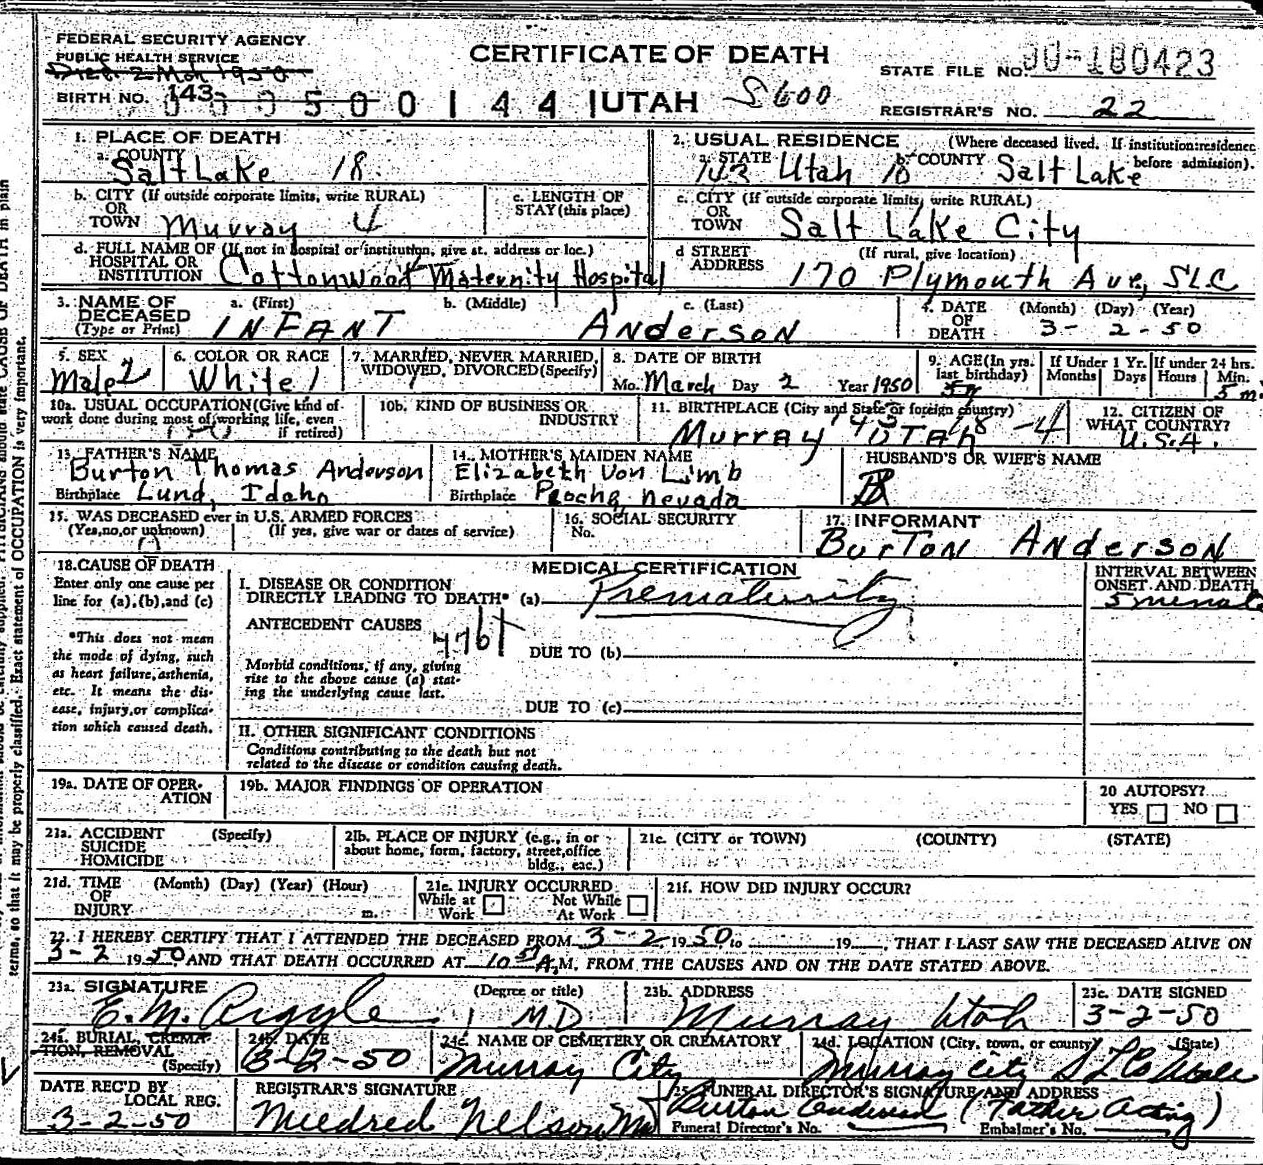 FEDERAL SECURITY AGENCY
PUBLIC HEALTH SERVICE
CERTIFICATE OF DEATH
STATE FILE NO. 180423
BIRTH NO. 143 UTAH S600
REGISTRAR'S NO. 22
1. PLACE OF DEATH
a. COUNTY
Salt Lake 18
2. USUAL RESIDENCE (Where deceased lived. If institution: residence before admission).
a. STATE b. COUNTY
143 Utah 18 Salt Lake
b. CITY (If outside corporate limits, write RURAL)
OR
TOWN Murray 4
c. LENGTH OF
STAY (this place)
c. CITY (If outside corporate limits, write RURAL)
OR
TOWN Salt Lake City
d. FULL NAME OF (If not in hospital or institution, give st. address or loc.)
HOSPITAL OR
INSTITUTION Cottonwood Maternity Hospital
d STREET (If rural, give location)
ADDRESS 170 Plymouth Ave, SLC
3. NAME OF a. (First) b. (Middle) c. (Last)
DECEASED
(Type or Print) INFANT Anderson
4. DATE (Month) (Day) (Year)
OF
DEATH 3-2-50
5. SEX
Male 2
6. COLOR OR RACE
White 1
7. MARRIED, NEVER MARRIED,
WIDOWED, DIVORCED (Specify)
8. DATE OF BIRTH
Mo. March Day 2 Year 1950
9. AGE (In yrs. last birthday)
If Under 1 Yr.
Months Days
If under 24 hrs.
Hours Min.
5 m.
10a. USUAL OCCUPATION (Give kind of
work done during most of working life, even
if retired)
10b. KIND OF BUSINESS OR
INDUSTRY
11. BIRTHPLACE (City and State or foreign country)
Murray UTAH
12. CITIZEN OF
WHAT COUNTRY?
U.S.A.
13. FATHER'S NAME
Burton Thomas Anderson
Birthplace Lund, Idaho
14. MOTHER'S MAIDEN NAME
Elizabeth Von Limb
Birthplace Pioche, Nevada
HUSBAND'S OR WIFE'S NAME
15. WAS DECEASED ever in U.S. ARMED FORCES
(Yes, no, or unknown) (If yes, give war or dates of service)
16. SOCIAL SECURITY
No.
17. INFORMANT
Burton Anderson
18. CAUSE OF DEATH
Enter only one cause per
line for (a), (b), and (c)
*This does not mean
the mode of dying, such
as heart failure, asthenia,
etc. It means the dis-
ease, injury, or complica-
tion which caused death.
MEDICAL CERTIFICATION
I. DISEASE OR CONDITION
DIRECTLY LEADING TO DEATH* (a) Prematurity
ANTECEDENT CAUSES
DUE TO (b)
Morbid conditions, if any, giving
rise to the above cause (a) stat-
ing the underlying cause last.
DUE TO (c)
II. OTHER SIGNIFICANT CONDITIONS
Conditions contributing to the death but not
related to the disease or condition causing death.
INTERVAL BETWEEN
ONSET AND DEATH
19a. DATE OF OPER-
ATION
19b. MAJOR FINDINGS OF OPERATION
20 AUTOPSY?
YES NO
21a. ACCIDENT (Specify)
SUICIDE
HOMICIDE
21b. PLACE OF INJURY (e.g., in or
about home, form, factory, street, office
bldg., eac.)
21c. (CITY OR TOWN) (COUNTY) (STATE)
21d. TIME (Month) (Day) (Year) (Hour)
OF
INJURY m.
21e. INJURY OCCURRED
While at Not While
Work At Work
21f. HOW DID INJURY OCCUR?
22. I HEREBY CERTIFY THAT I ATTENDED THE DECEASED FROM 3-2 1950 to 19 , THAT I LAST SAW THE DECEASED ALIVE ON
3-2 1950 AND THAT DEATH OCCURRED AT A.M. FROM THE CAUSES AND ON THE DATE STATED ABOVE.
23a. SIGNATURE (Degree or title)
E. M. Argyle, M.D.
23b. ADDRESS
Murray Utah
23c. DATE SIGNED
3-2-50
24a. BURIAL, CREMA-
TION, REMOVAL
(Specify)
24b. DATE
3-2-50
24c. NAME OF CEMETERY OR CREMATORY
Murray City
24d. LOCATION (City, town, or county) (State)
Murray City S L Co
DATE REC'D BY
LOCAL REG.
3-2-50
REGISTRAR'S SIGNATURE
Mildred Nelson
25. FUNERAL DIRECTOR'S SIGNATURE AND ADDRESS
Burton Anderson (Father Acting)
Funeral Director's No. Embalmer's No.
terms, so that it may be properly classified. Exact statement of OCCUPATION is very important.